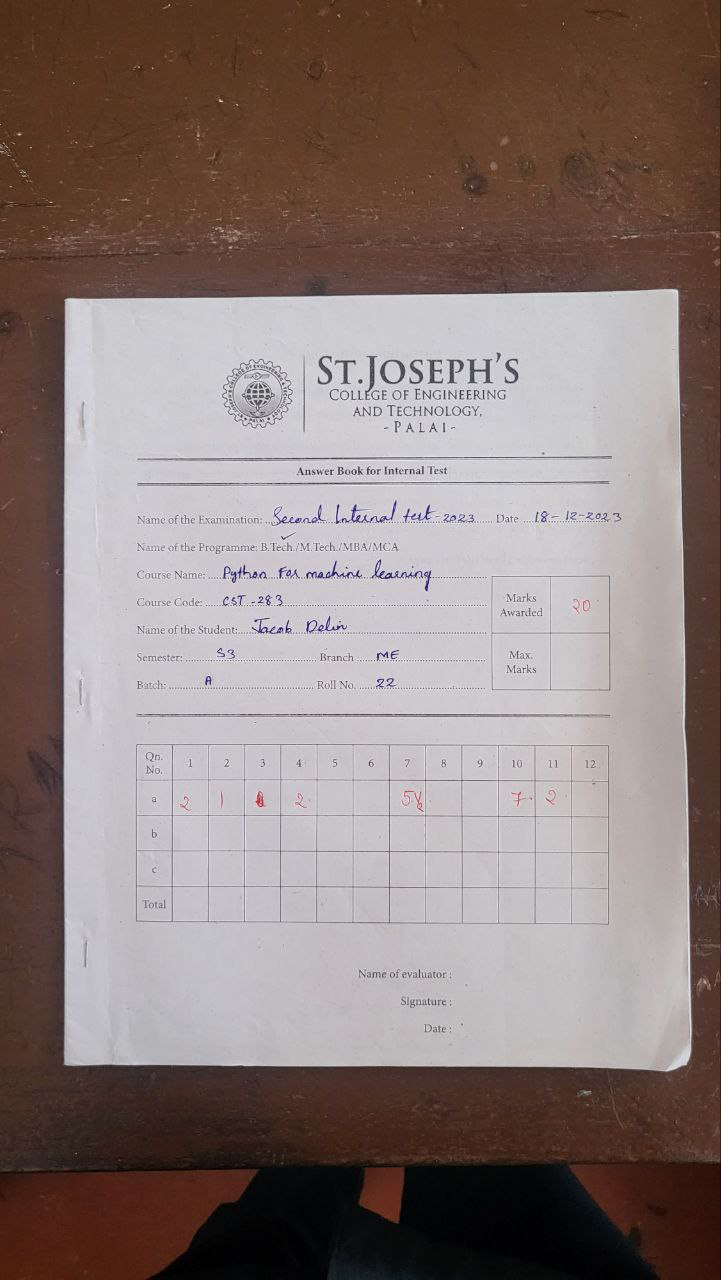 ST.JOSEPH'S
COLLEGE OF ENGINEERING
AND TECHNOLOGY,
- PALAI -
Answer Book for Internal Test
Name of the Examination: Second Internal test - 2023 Date 18-12-2023
Name of the Programme: B.Tech./M.Tech./MBA/MCA
Course Name: Python For machine learning
Course Code: CST - 283
Marks Awarded 20
Name of the Student: Jacob Delin
Semester: S3 Branch ME
Max. Marks
Batch: A Roll No. 22
Qn. No. 1 2 3 4 5 6 7 8 9 10 11 12
a 2 1 2 5½ 7 2
b
c
Total
Name of evaluator :
Signature :
Date :